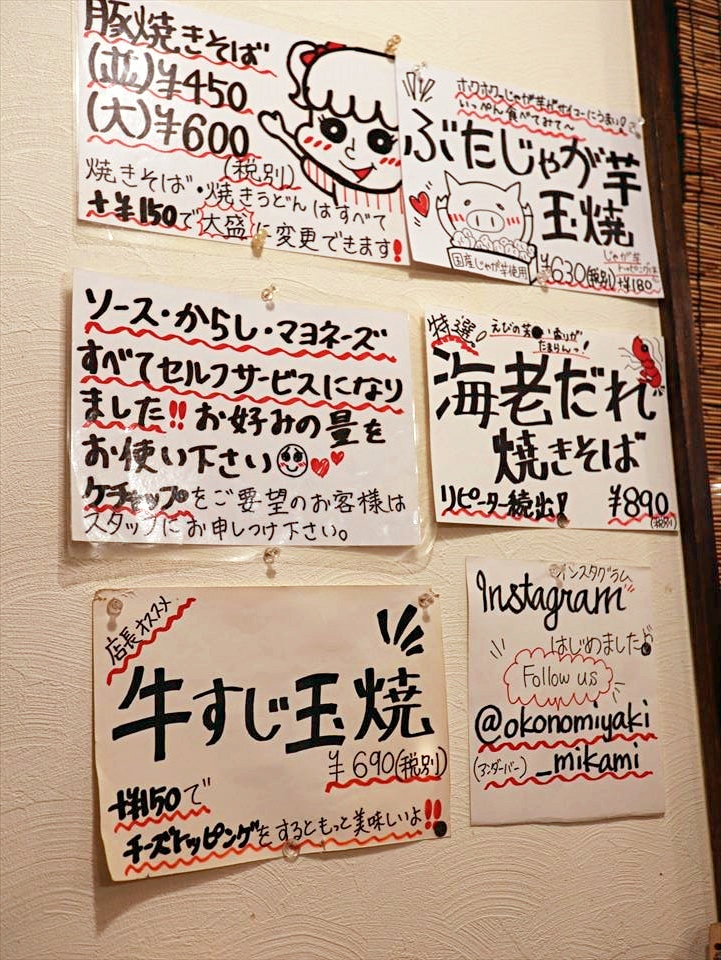 豚焼きそば
(並)¥450
(大)¥600
(税別)
焼きそば・焼きうどんはすべて
+¥150で大盛に変更できます!
ホクホクのじゃが芋がサイコーにうまい!
いっぺん食べてみて〜
ぶたじゃが芋
玉焼
国産じゃが芋使用
¥630(税別)
じゃが芋
トッピングは
+¥180〜
ソース・からし・マヨネーズ
すべてセルフサービスになり
ました!!お好みの量を
お使い下さい
ケチャップをご要望のお客様は
スタッフにお申しつけ下さい。
特選!
えびの
香りが
たまらんっ!
海老だれ
焼きそば
リピーター続出! ¥890
(税別)
店長オススメ
牛すじ玉焼
¥690(税別)
+¥150で
チーズトッピングをするともっと美味しいよ!!
インスタグラム
Instagram
はじめましたよ
Follow us
@okonomiyaki
(アンダーバー) _mikami